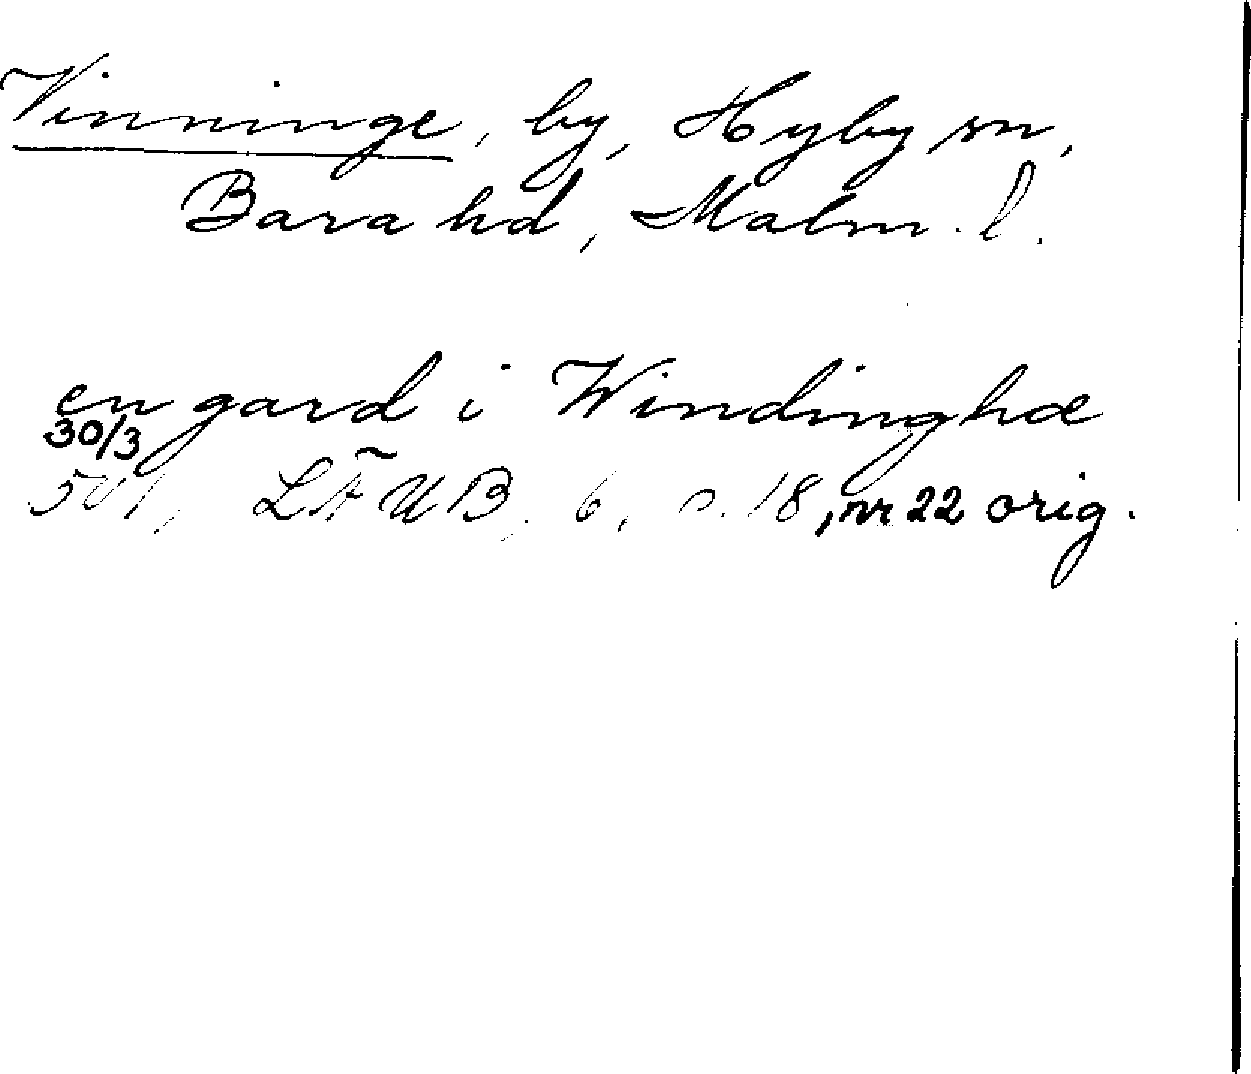 Vinninge, by, Hyby sn,
Bara hd, Malm. l.
en gard i Windinghæ
30/3
501, LÄUB. 6, s. 18, nr 22 orig.